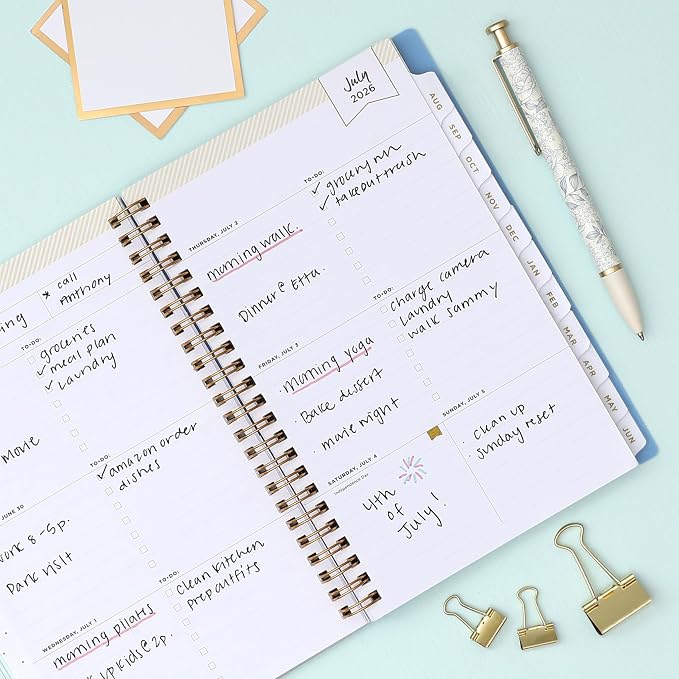 * call
Anthony
TO-DO:
groceries
✓ meal plan
✓ Laundry
movie
TO-DO:
✓ amazon order
dishes
JUNE 30
work 8-5p.
Park visit
TO-DO:
clean kitchen
prep outfits
WEDNESDAY, JULY 1
morning pilates
kids @ 2p.
July
2026
THURSDAY, JULY 2
morning walk.
Dinner @ Etta.
TO-DO:
✓ grocery run
✓ take out trash
FRIDAY, JULY 3
· morning yoga
· Bake dessert
· movie night
TO-DO:
charge camera
Laundry
walk sammy
SATURDAY, JULY 4
Independence Day
4th
of
July!
SUNDAY, JULY 5
· clean up
· sunday reset
AUG
SEP
OCT
NOV
DEC
JAN
FEB
MAR
APR
MAY
JUN